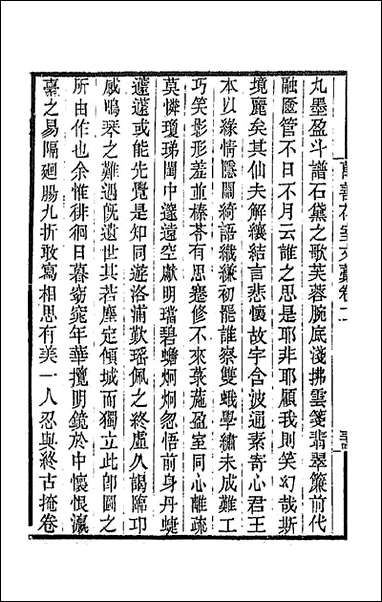 萬善花室文藁卷二
丸墨盈斗譜石黛之歌芙蓉腕底淺拂雲箋翡翠簾前代
融匳管不日不月云誰之思是耶非耶顧我則笑幻哉斯
境麗矣其仙夫解纕結言悲懷故宇含波通素寄心君王
本以緣情隱關綺語織縑初罷誰察雙蛾學繡未成難工
巧笑影形羞並榛苓有思蹇修不來菉葹盈室同心離疏
莫憐瓊珶閨中邃遠空獻明璫碧蟾炯炯忽悟前身丹蜨
蘧蘧或能先覺是知同遊洛浦歎瑶佩之終虛久謁臨邛
感鳴琴之難遇旣遺世其若塵定傾城而獨立此卽圖之
所由作也余惟徘徊日暮窈窕年華攬明鏡於中懷恨瀛
臺之易隔廻腸九折敢寫相思有美一人忍與終古掩卷